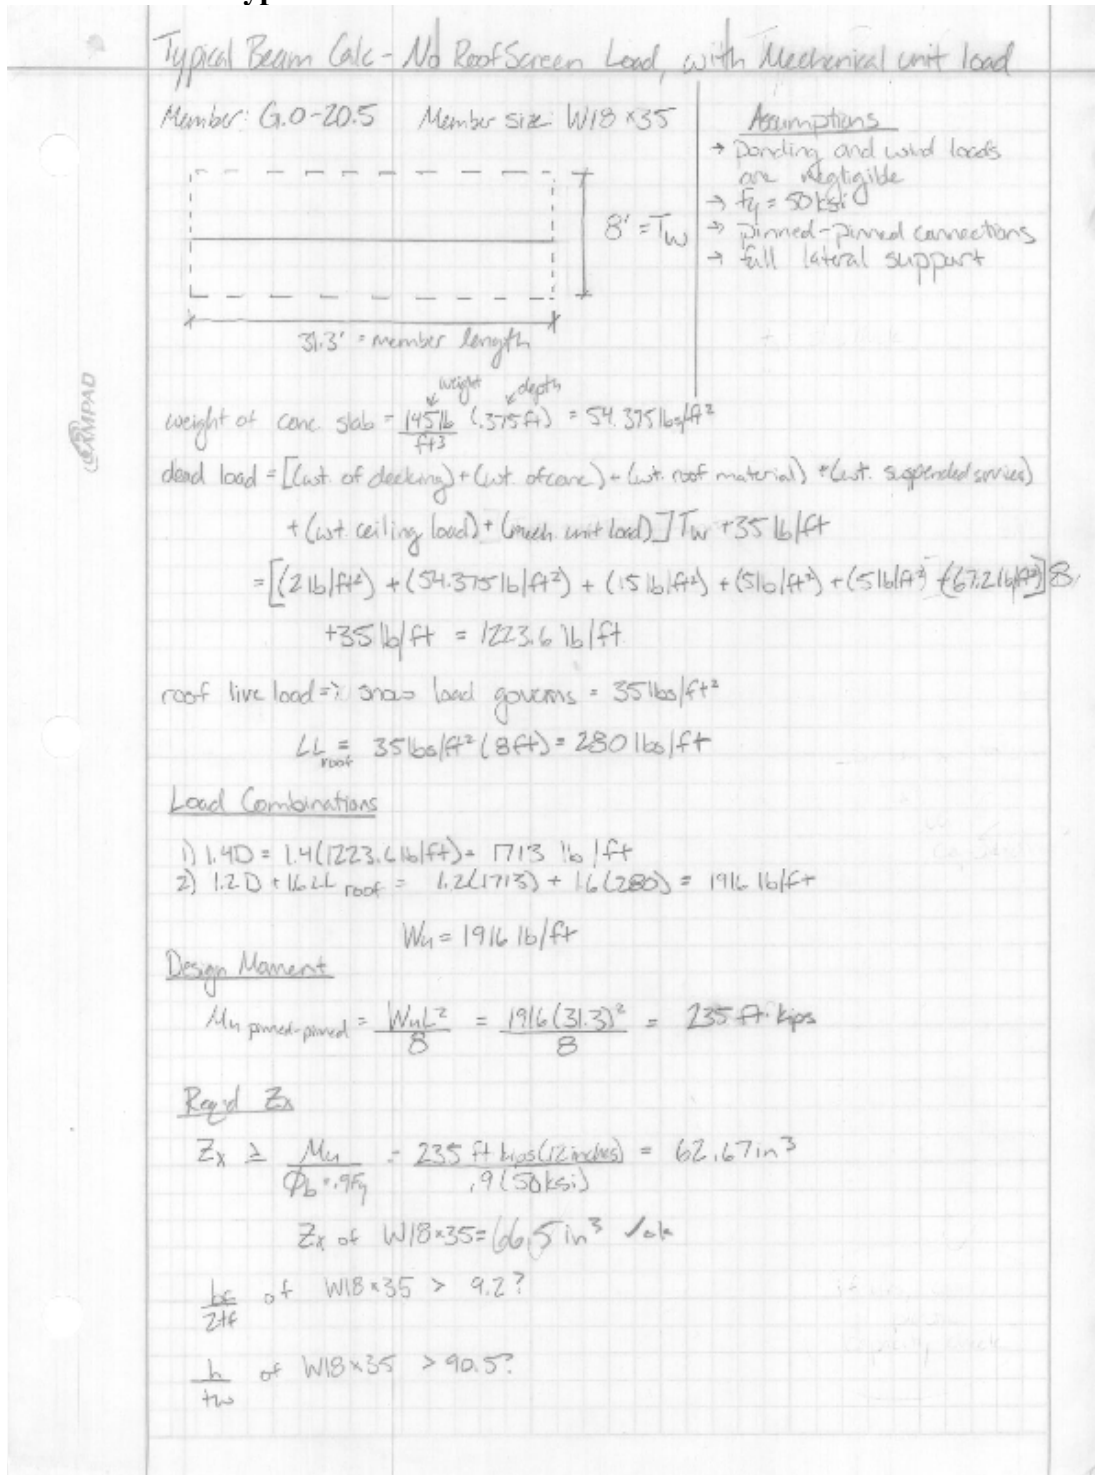 Typical Beam Calc - No Roof Screen Load, with Mechanical unit load
Member: G.0-20.5 Member size: W18 x35
Assumptions
→ ponding and wind loads
are negligible
→ fy = 50 ksi
→ pinned-pinned connections
→ full lateral support
8' = Tw
31.3' = member length
weight depth
weight of conc. slab = 145lb/ft3 (.375ft) = 54.375 lbs/ft²
dead load = [(wt. of decking) + (wt. of conc) + (wt. roof material) + (wt. suspended services)
+ (wt. ceiling load) + (mech. unit load)] Tw + 35 lb/ft
= [(2 lb/ft²) + (54.375 lb/ft²) + (15 lb/ft²) + (5 lb/ft²) + (5 lb/ft²) + (67.2 lb/ft²)] 8
+35 lb/ft = 1223.6 lb/ft
roof live load => snow load governs = 35 lbs/ft²
LL roof = 35 lbs/ft² (8ft) = 280 lbs/ft
Load Combinations
1) 1.4D = 1.4(1223.6 lb/ft) = 1713 lb/ft
2) 1.2D + 1.6 LL roof = 1.2(1713) + 1.6(280) = 1916 lb/ft
Wu = 1916 lb/ft
Design Moment
Mu pinned-pinned = WuL²/8 = 1916(31.3)²/8 = 235 ft·kips
Req'd Zx
Zx ≥ Mu/Φb=.9Fy = 235 ft kips(12 inches)/.9(50ksi) = 62.67 in³
Zx of W18x35 = 66.5 in³ ✓ok
bf/2tf of W18x35 > 9.2?
h/tw of W18x35 > 90.5?
AMPAD